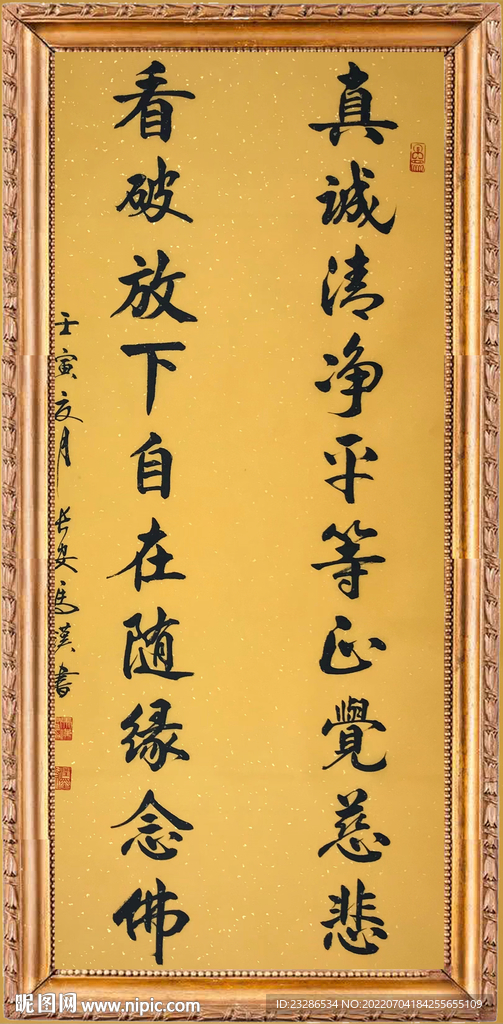 真誠清净平等正覺慈悲
看破放下自在随缘念佛
壬寅夏月 长安馬漢書
昵图网 www.nipic.com
ID:23286534 NO:20220704184255655109